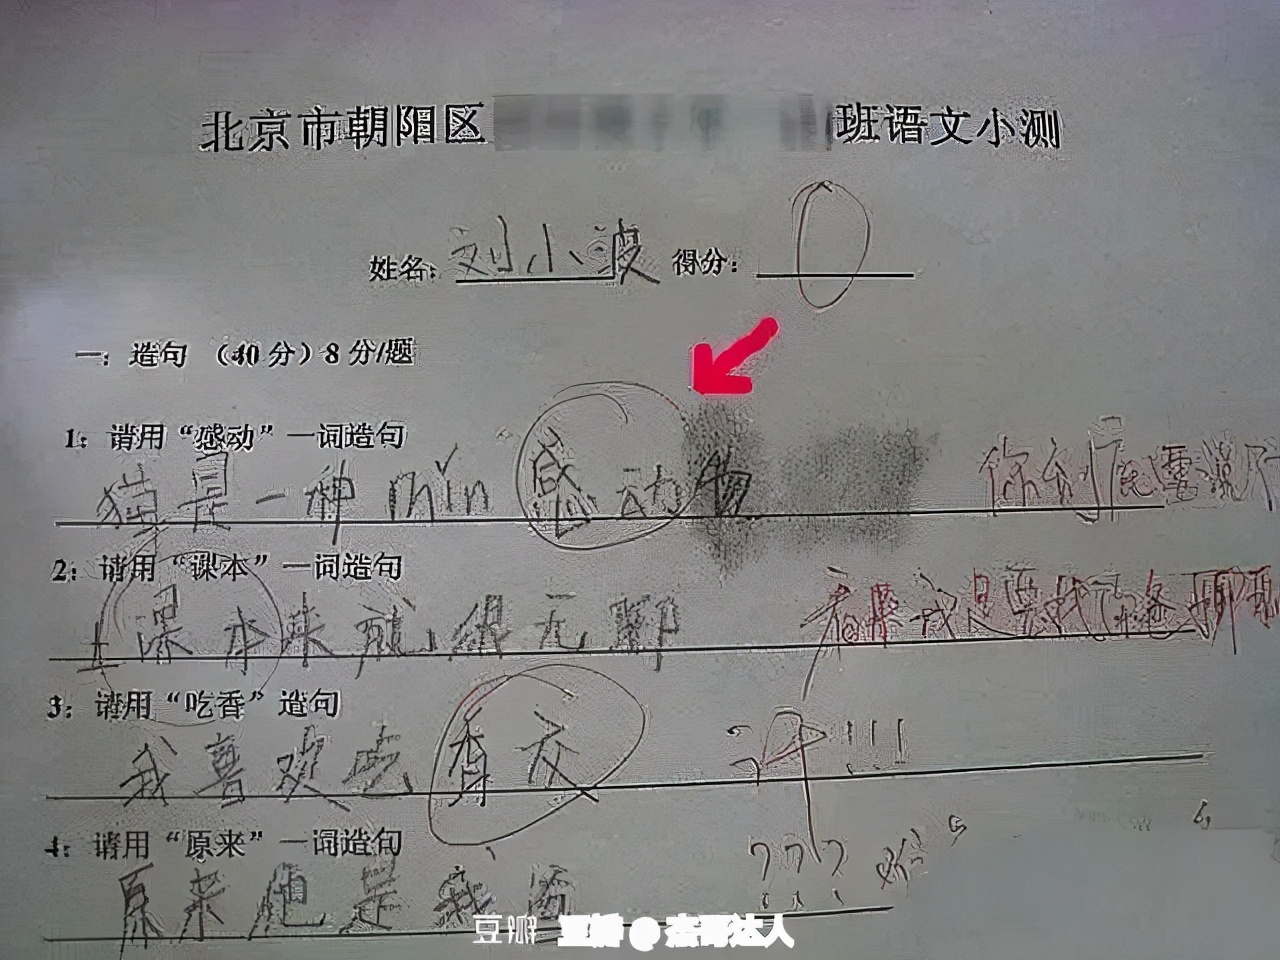 北京市朝阳区 班语文小测
姓名: 刘小波 得分: 0
一: 造句 (40分) 8分/题
1: 请用“感动”一词造句
猫是一种mǐn感动物
2: 请用“课本”一词造句
上课本来就很无聊 看来我是要找你爸聊聊
3: 请用“吃香”造句
我喜欢吃香交 !!!
4: 请用“原来”一词造句
原来他是我爸 ???
豆瓣